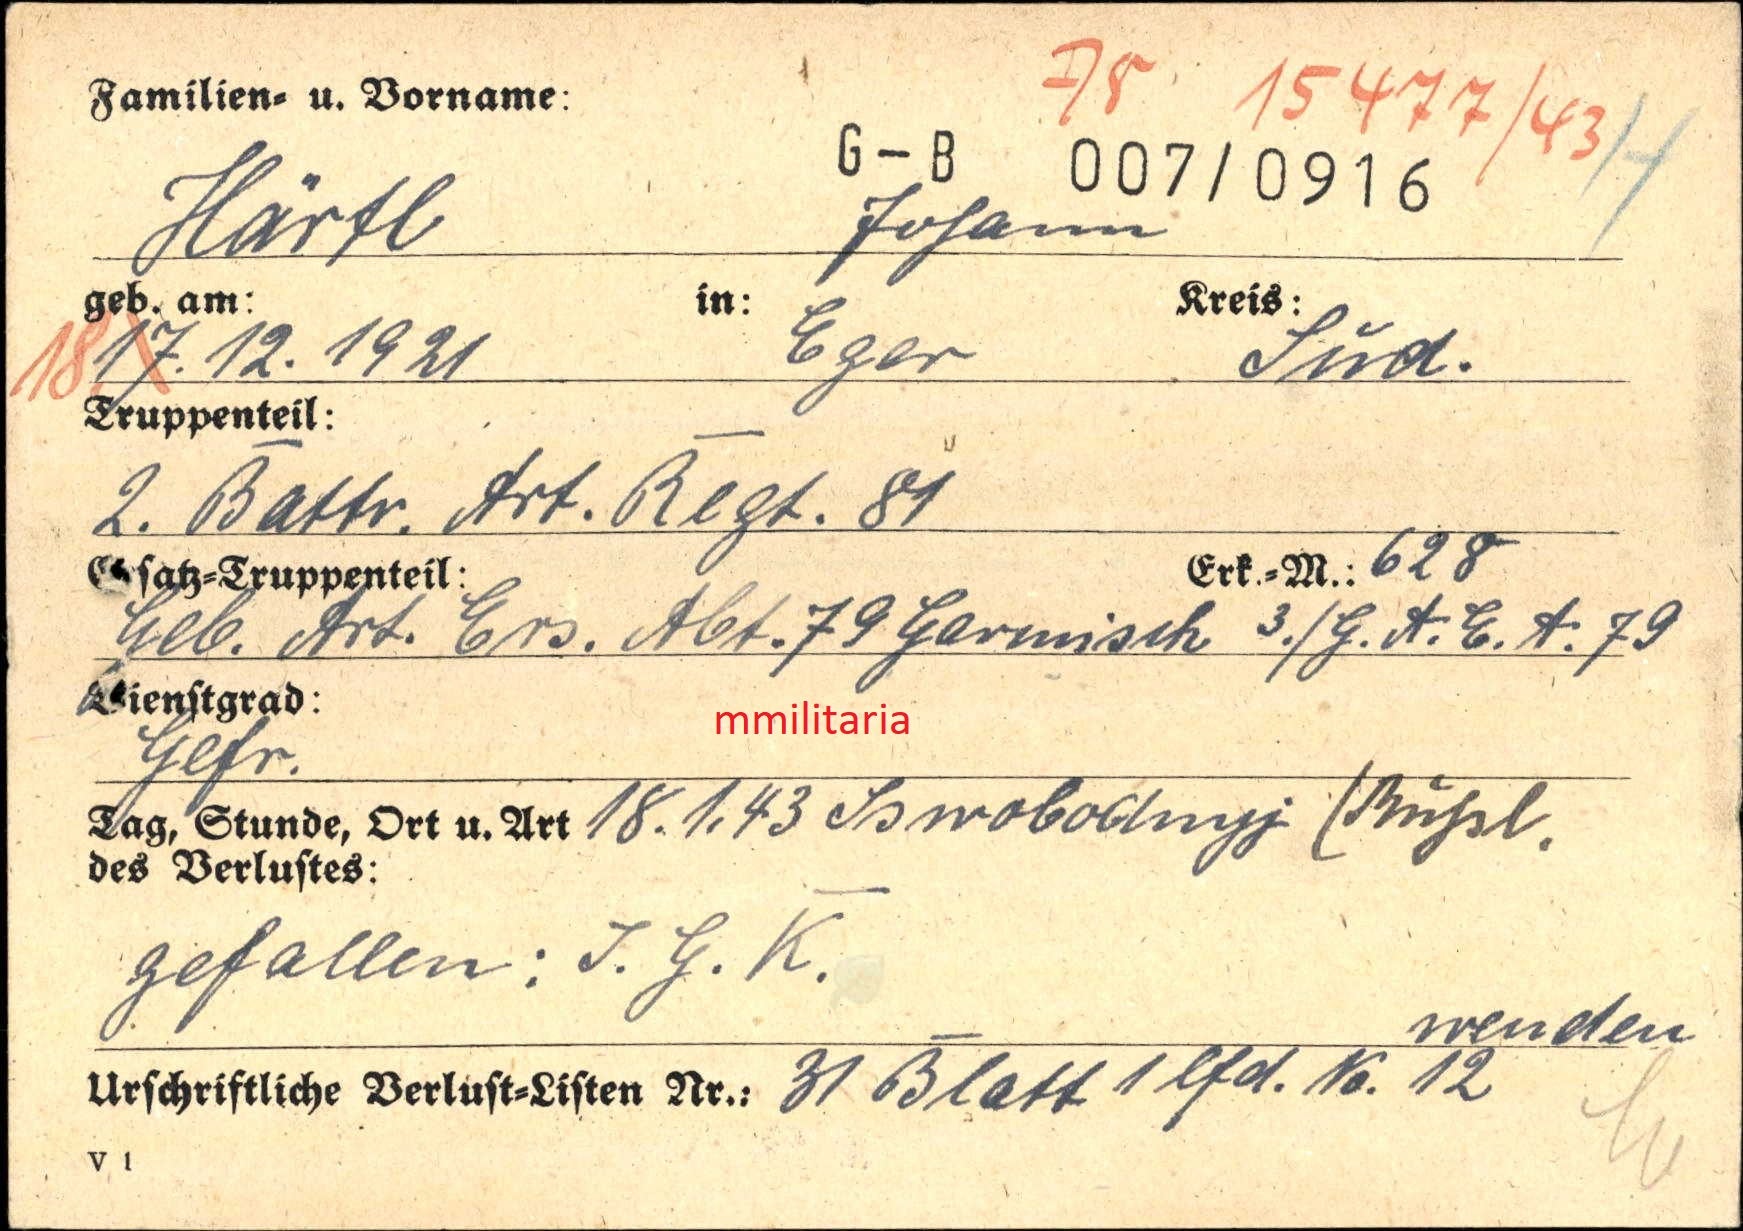 I/8 15477/43/
Familien- u. Vorname:
G-B 007/0916
Härtl Johann
geb. am: in: Kreis:
18 17. 12. 1921 Eger Sud.
Truppenteil:
2. Battr. Art. Regt. 81
Ersatz-Truppenteil: Erk.-M.: 628
Geb. Art. Ers. Abt. 79 Garmisch 3./G. A. E. A. 79
Dienstgrad:
mmilitaria
Gefr.
Tag, Stunde, Ort u. Art 18. 1. 43 Sswobodnyj (Rußl.
des Verlustes:
gefallen: I. G. K.
wenden
Urschriftliche Verlust-Listen Nr.: 31 Blatt 1 lfd. No. 12
V 1